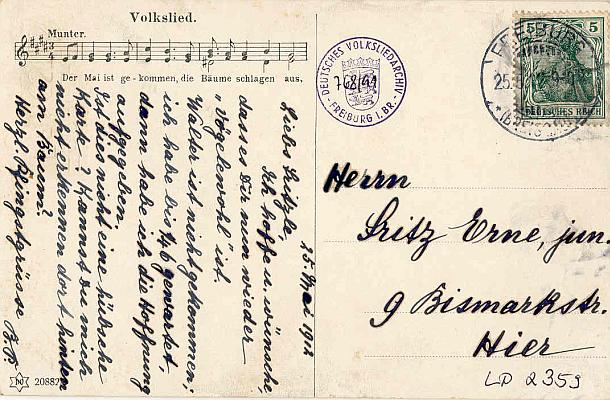 Volkslied.
Munter.
Der Mai ist ge - kommen, die Bäume schlagen aus,
25. Mai 1912
Liebs Fritzle,
Ich hoffe u. wünsche,
dasses Dir nun wieder
„Vögelewohl" ist.
Walter ist nicht gekommen;
ich habe bis ½6 gewartet,
dann habe ich die Hoffnung
aufgegeben.
Ist dies nicht eine hübsche
Karte? Kannst du mich
nicht erkennen dort hinten
am Baum?
Herzl. Pfingstgrüsse
B.B
DEUTSCHES VOLKSLIEDARCHIV
FREIBURG I. BR.
FREIBURG
25.
(BREISGAU)
5
DEUTSCHES REICH
Herrn
Fritz Erne, jun.
9 Bismarkstr.
Hier
LP 2359